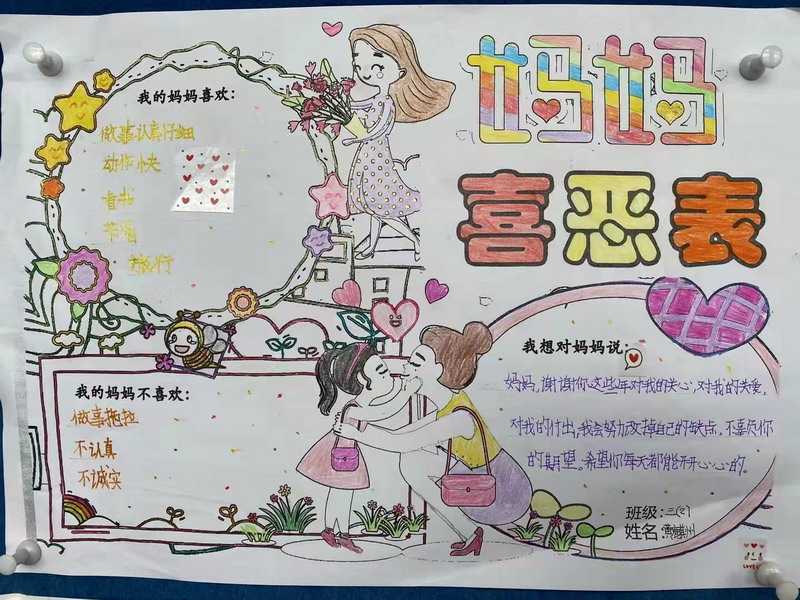 妈妈
喜恶表
我的妈妈喜欢：
做事认真仔细
动作快
旅行
我的妈妈不喜欢：
做事拖拉
不认真
不诚实
我想对妈妈说：
妈妈，谢谢你这些年对我的关心，对我的关爱，
对我的付出，我会努力改掉自己的缺点，不辜负你
的期望。希望你每天都能开开心心的。
班级：三(2)
姓名：